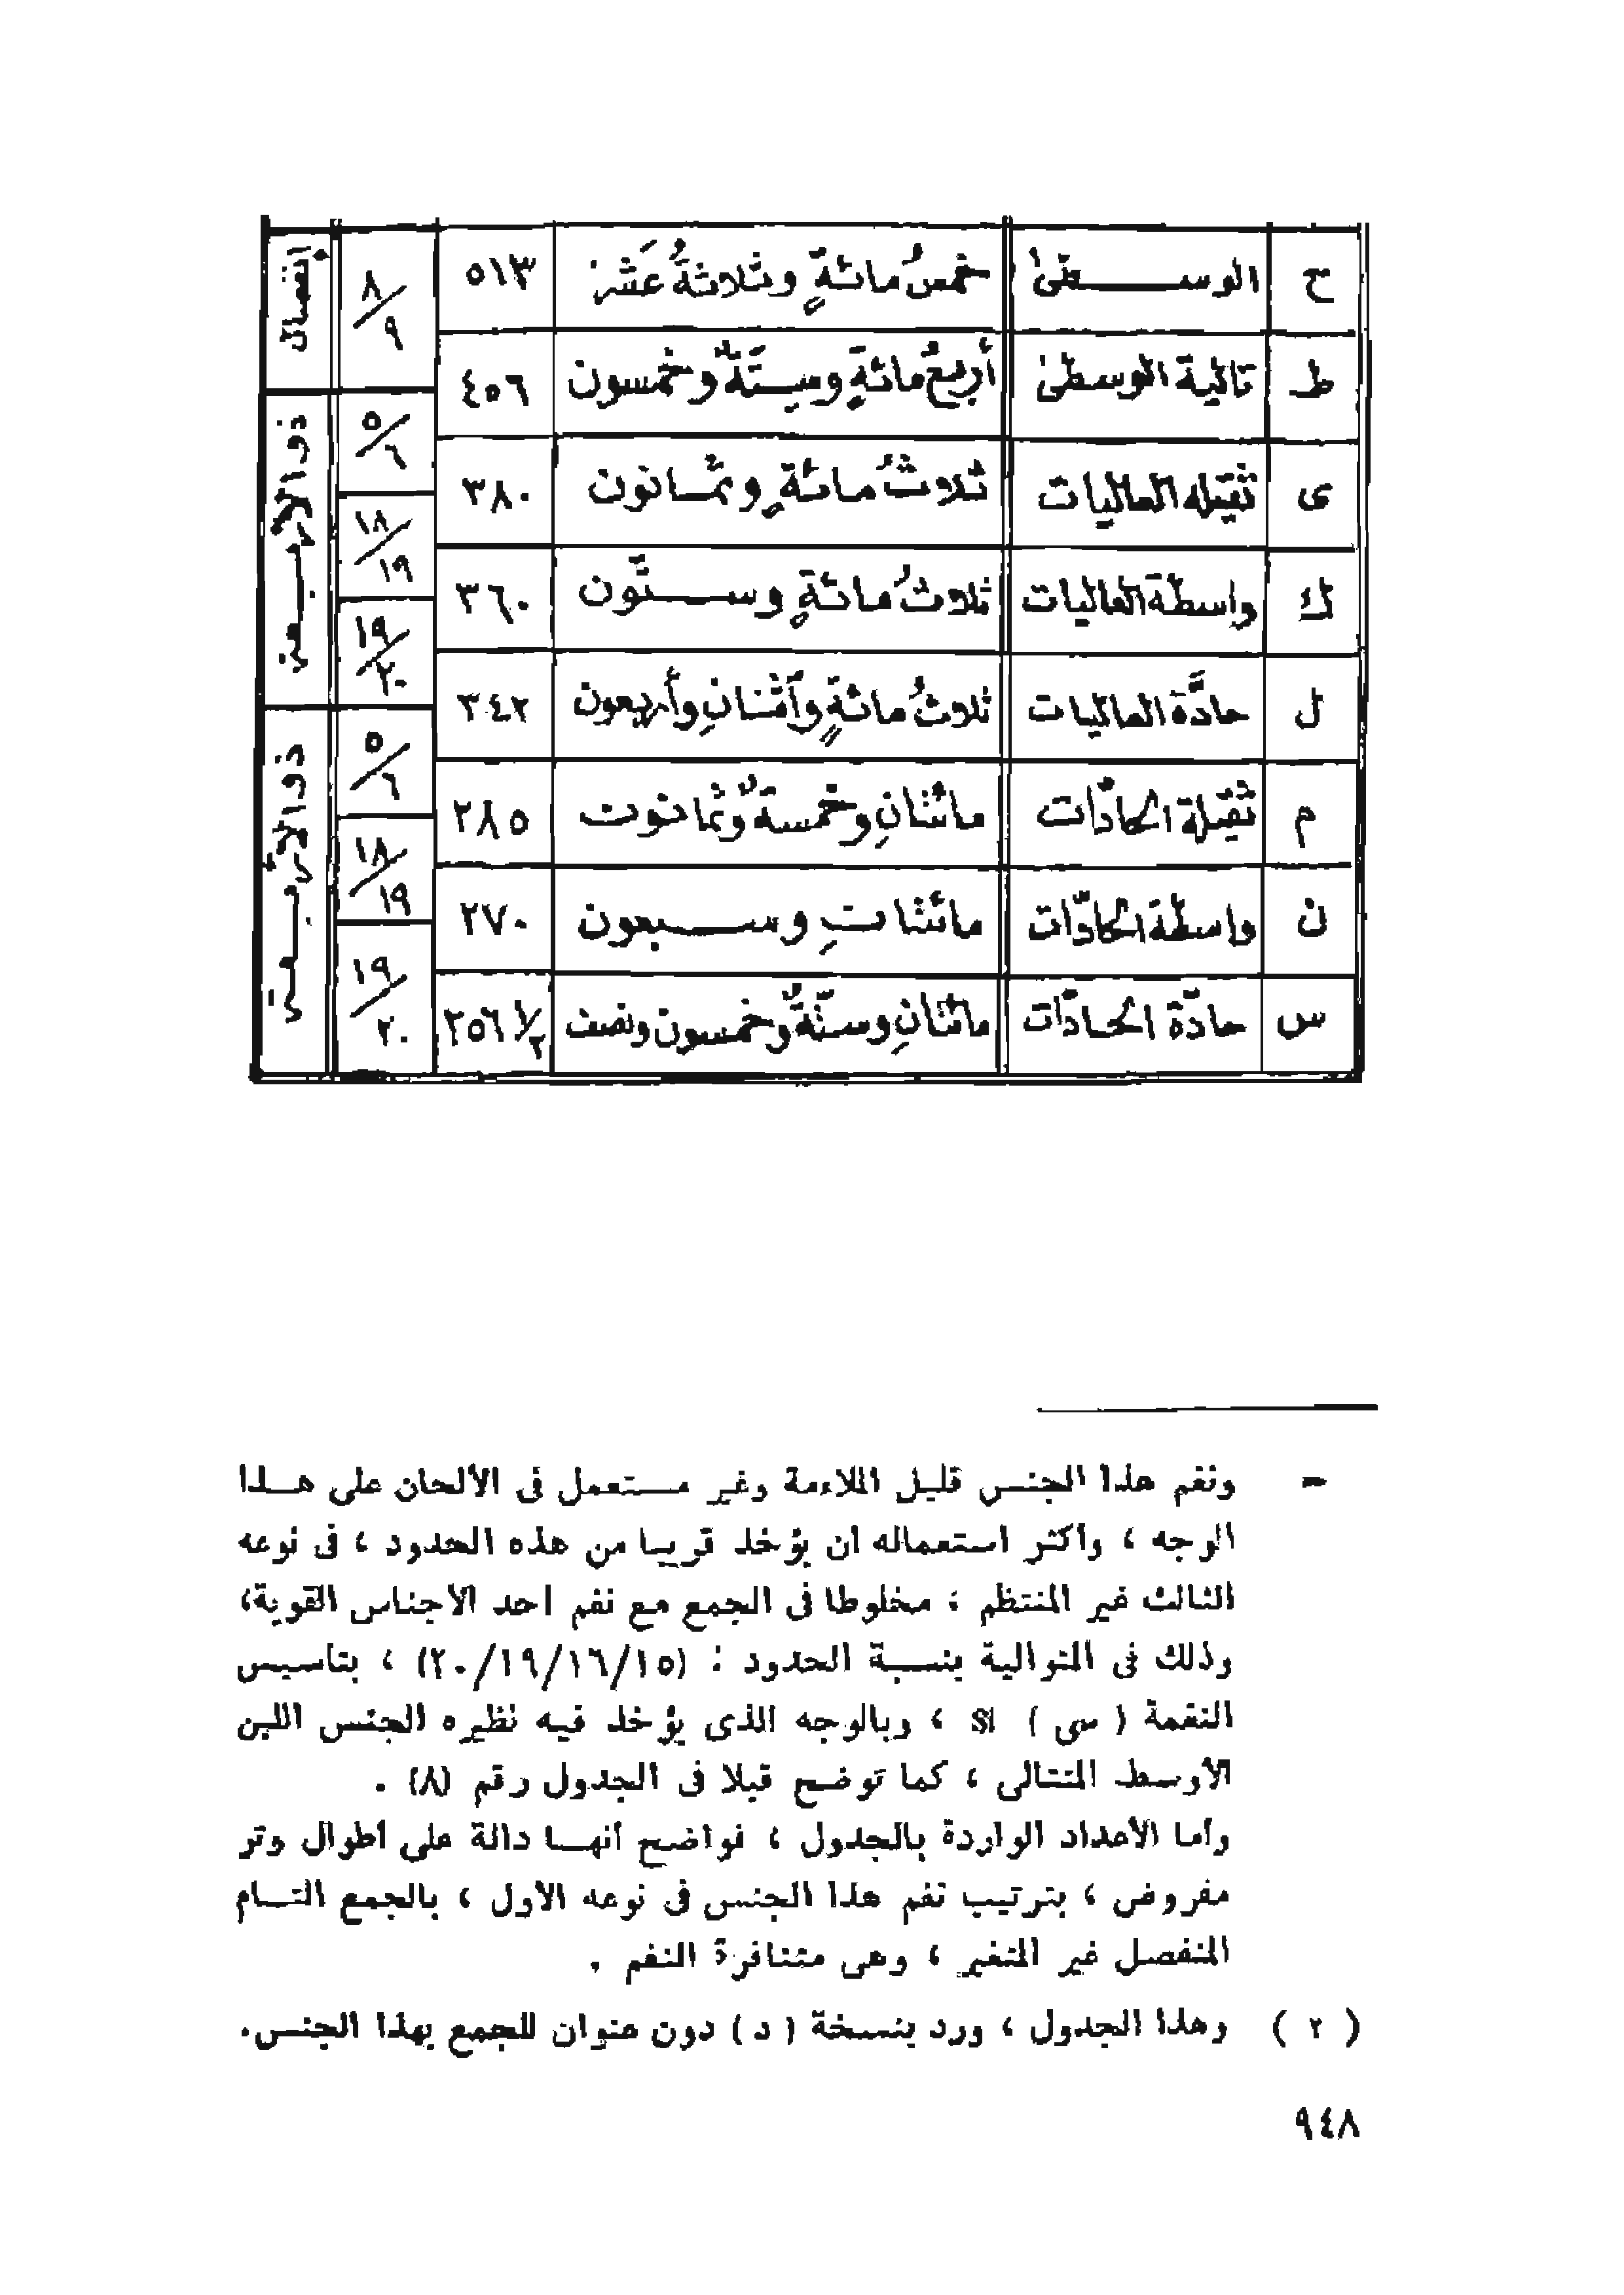 ح الوسطىٰ خمسُ مائةٍ وثلاثةُ عَشَر ٥١٣ ٨/٩ انفصال
ط تالية الوسطىٰ أربعُ مائةٍ وستةٌ وخمسون ٤٥٦
ى ثقيلة العاليات ثلاثُ مائةٍ وثمانون ٣٨٠ ٥/٦ ذو الأربعة
ك واسطة العاليات ثلاثُ مائةٍ وستّون ٣٦٠ ١٨/١٩
ل حادّة العاليات ثلاثُ مائةٍ وآثنانِ وأربعون ٣٤٢ ١٩/٢٠
م ثقيلة الحادّات مائتانِ وخمسةٌ وثمانون ٢٨٥ ٥/٦ ذو الأربعة
ن واسطة الحادّات مائتانِ وسبعون ٢٧٠ ١٨/١٩
س حادّة الحادّات مائتانِ وستّةٌ وخمسون ونصف ٢٥٦ ١/٢ ١٩/٢٠
— ونغم هذا الجنس قليل الملاءمة وغير مستعمل فى الألحان على هذا
الوجه ، واكثر استعماله ان يؤخذ قريبا من هذه الحدود ، فى نوعه
الثالث غير المنتظم ، مخلوطا فى الجمع مع نغم احد الأجناس القوية،
وذلك فى المتوالية بنسبة الحدود : (٢٠/١٩/١٦/١٥) ، بتأسيس
النغمة ( سى ) SI ، وبالوجه الذى يؤخذ فيه نظيره الجنس اللين
الأوسط المتتالى ، كما توضح قبلا فى الجدول رقم (٨) .
وأما الأعداد الواردة بالجدول ، فواضح أنها دالة على أطوال وتر
مفروض ، بترتيب نغم هذا الجنس فى نوعه الأول ، بالجمع التام
المنفصل غير المتغير ، وهى متنافرة النغم .
( ٢ ) وهذا الجدول ، ورد بنسخة ( د ) دون عنوان للجمع بهذا الجنس.
٩٤٨